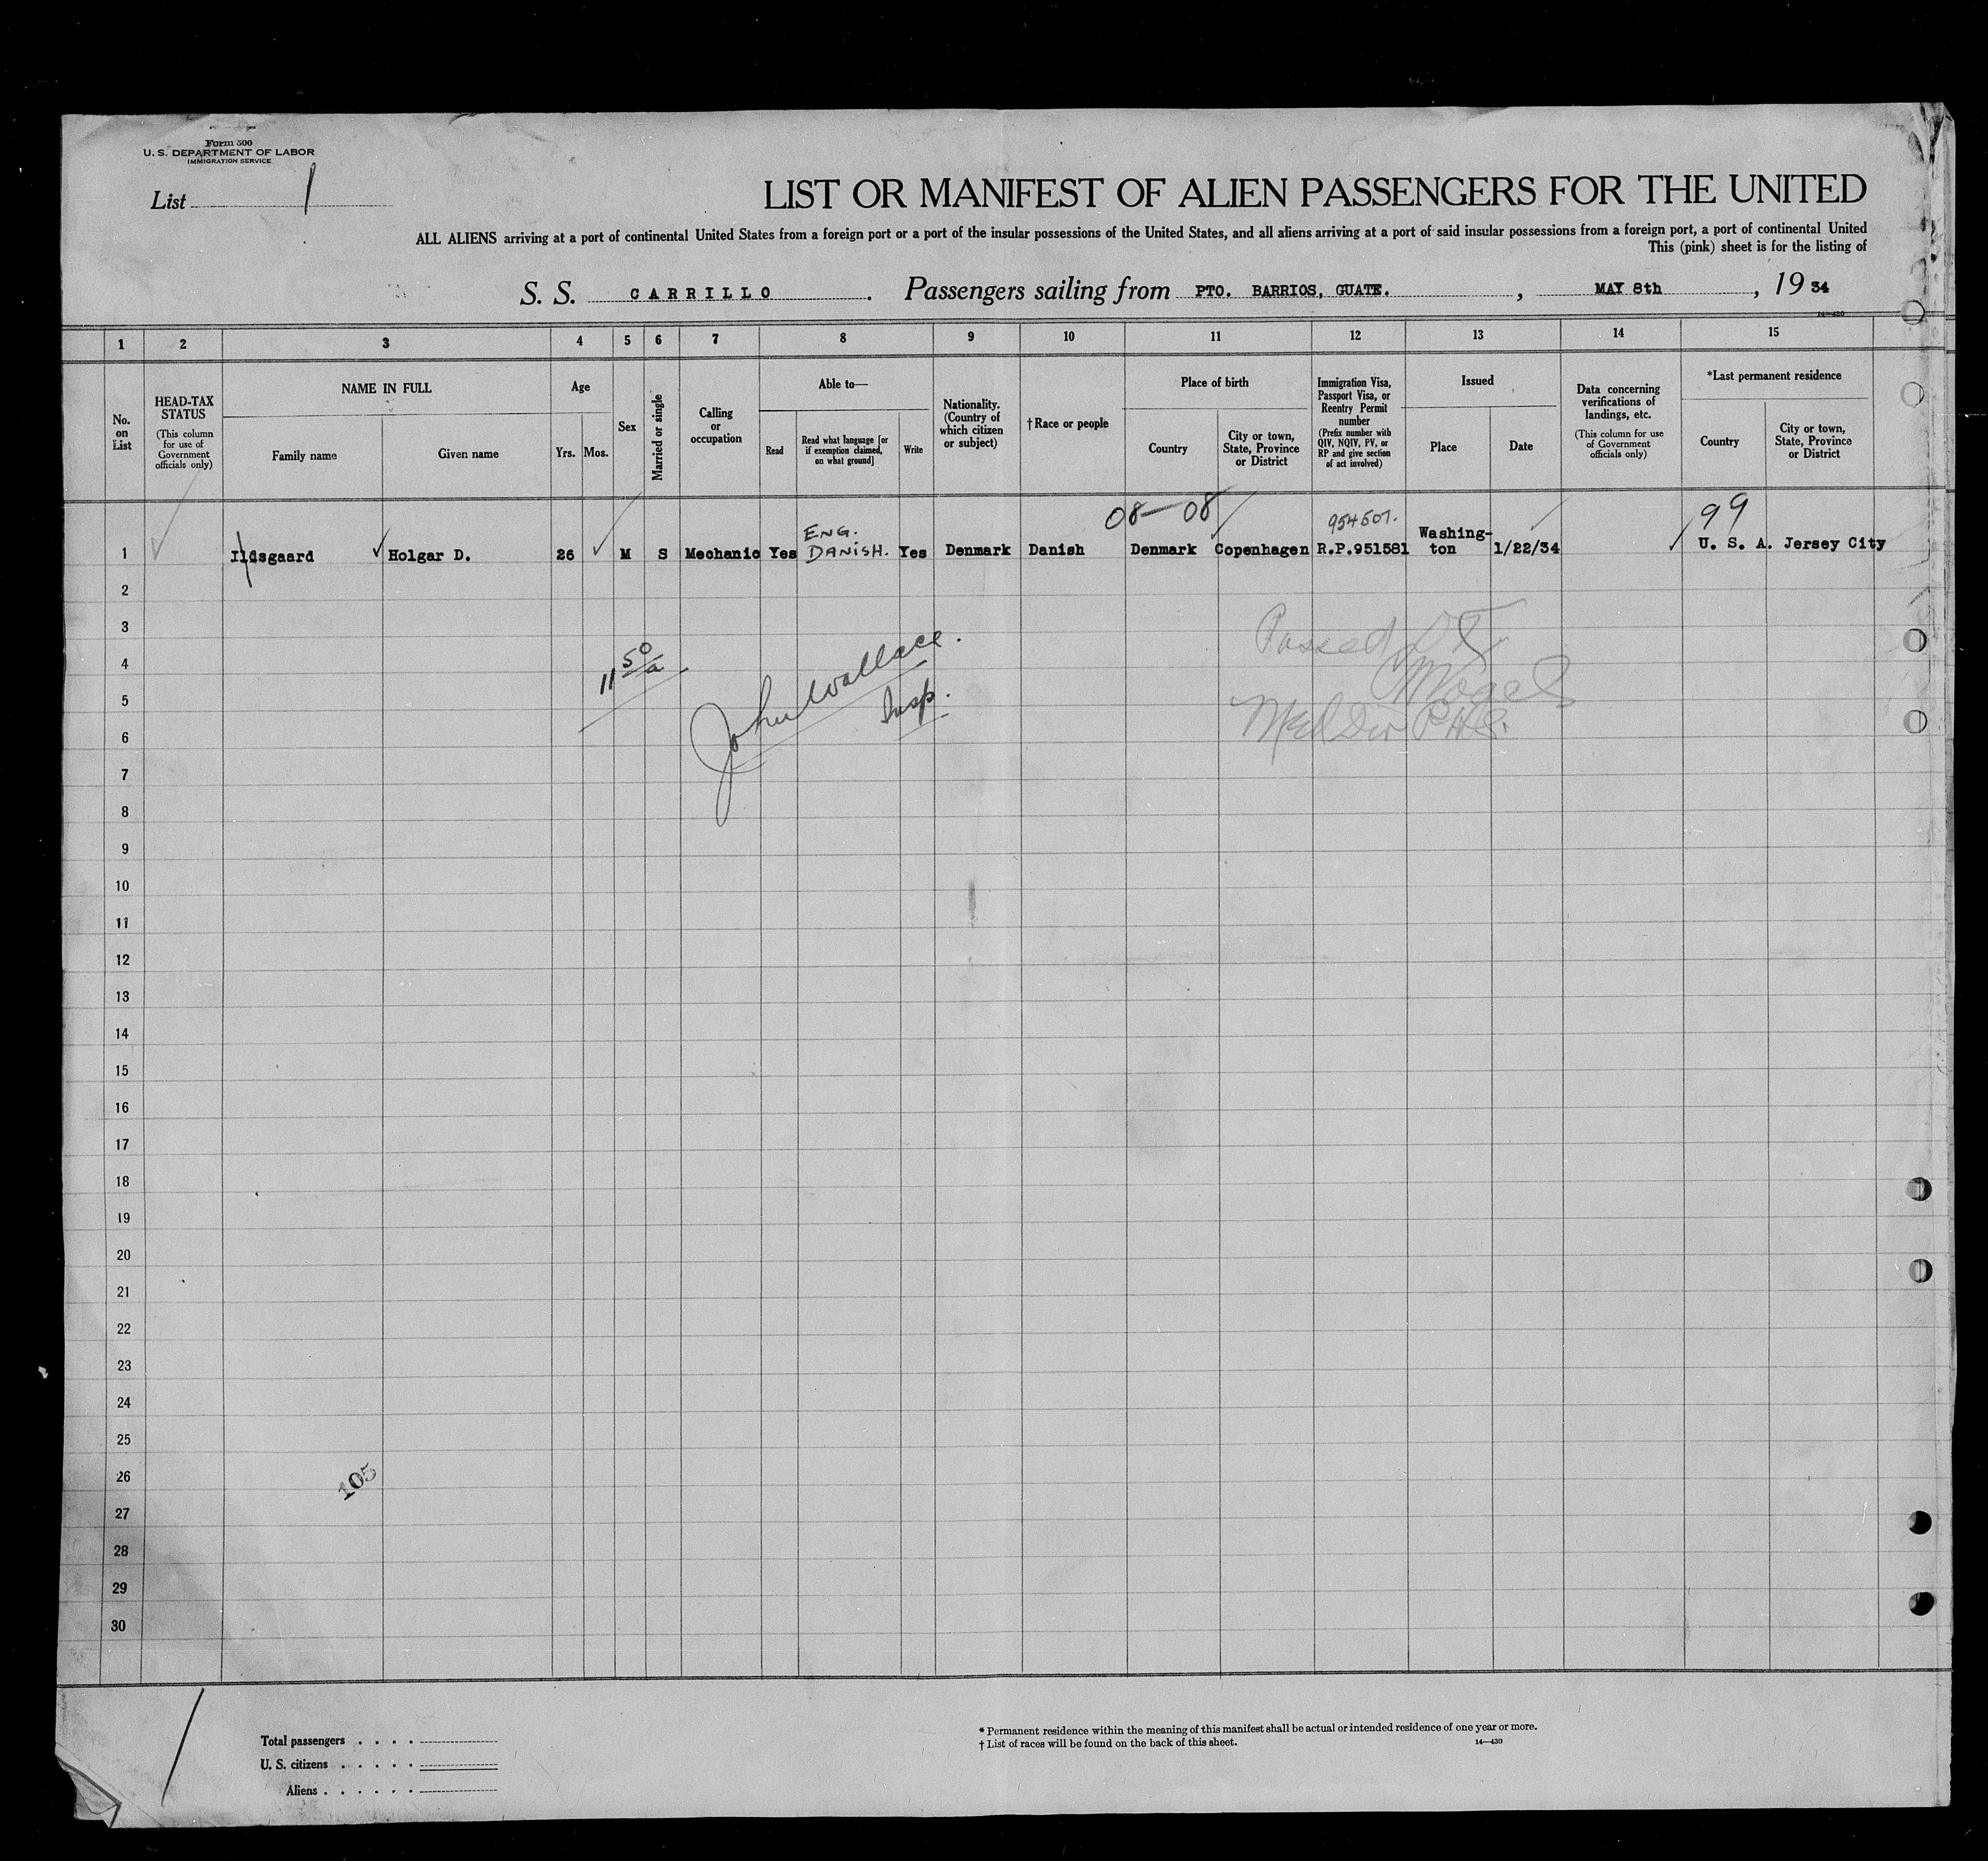 Form 500
U. S. DEPARTMENT OF LABOR
IMMIGRATION SERVICE
List 1
LIST OR MANIFEST OF ALIEN PASSENGERS FOR THE UNITED
ALL ALIENS arriving at a port of continental United States from a foreign port or a port of the insular possessions of the United States, and all aliens arriving at a port of said insular possessions from a foreign port, a port of continental United
This (pink) sheet is for the listing of
S. S. CARRILLO. Passengers sailing from PTO. BARRIOS, GUATE., MAY 8th, 19 34
14—430
1 2 3 4 5 6 7 8 9 10 11 12 13 14 15
No. on List
HEAD-TAX STATUS
(This column for use of Government officials only)
NAME IN FULL
Family name
Given name
Age
Yrs.
Mos.
Sex
Married or single
Calling or occupation
Able to—
Read
Read what language [or if exemption claimed, on what ground]
Write
Nationality. (Country of which citizen or subject)
†Race or people
Place of birth
Country
City or town, State, Province or District
Immigration Visa, Passport Visa, or Reentry Permit number
(Prefix number with QIV, NQIV, PV, or RP and give section of act involved)
Issued
Place
Date
Data concerning verifications of landings, etc.
(This column for use of Government officials only)
*Last permanent residence
Country
City or town, State, Province or District
08—08
99
ENG.
954507.
1 Ildsgaard Holgar D. 26 M S Mechanic Yes DANISH. Yes Denmark Danish Denmark Copenhagen R.P.951581 Washing-ton 1/22/34 U. S. A. Jersey City
2
3
Passed
4
11 50/a
John Wallace.
5
Insp.
6
7
8
9
10
11
12
13
14
15
16
17
18
19
20
21
22
23
24
25
26
105
27
28
29
30
Total passengers . . . .
U. S. citizens . . . . .
Aliens . . . . . .
* Permanent residence within the meaning of this manifest shall be actual or intended residence of one year or more.
† List of races will be found on the back of this sheet.
14—430